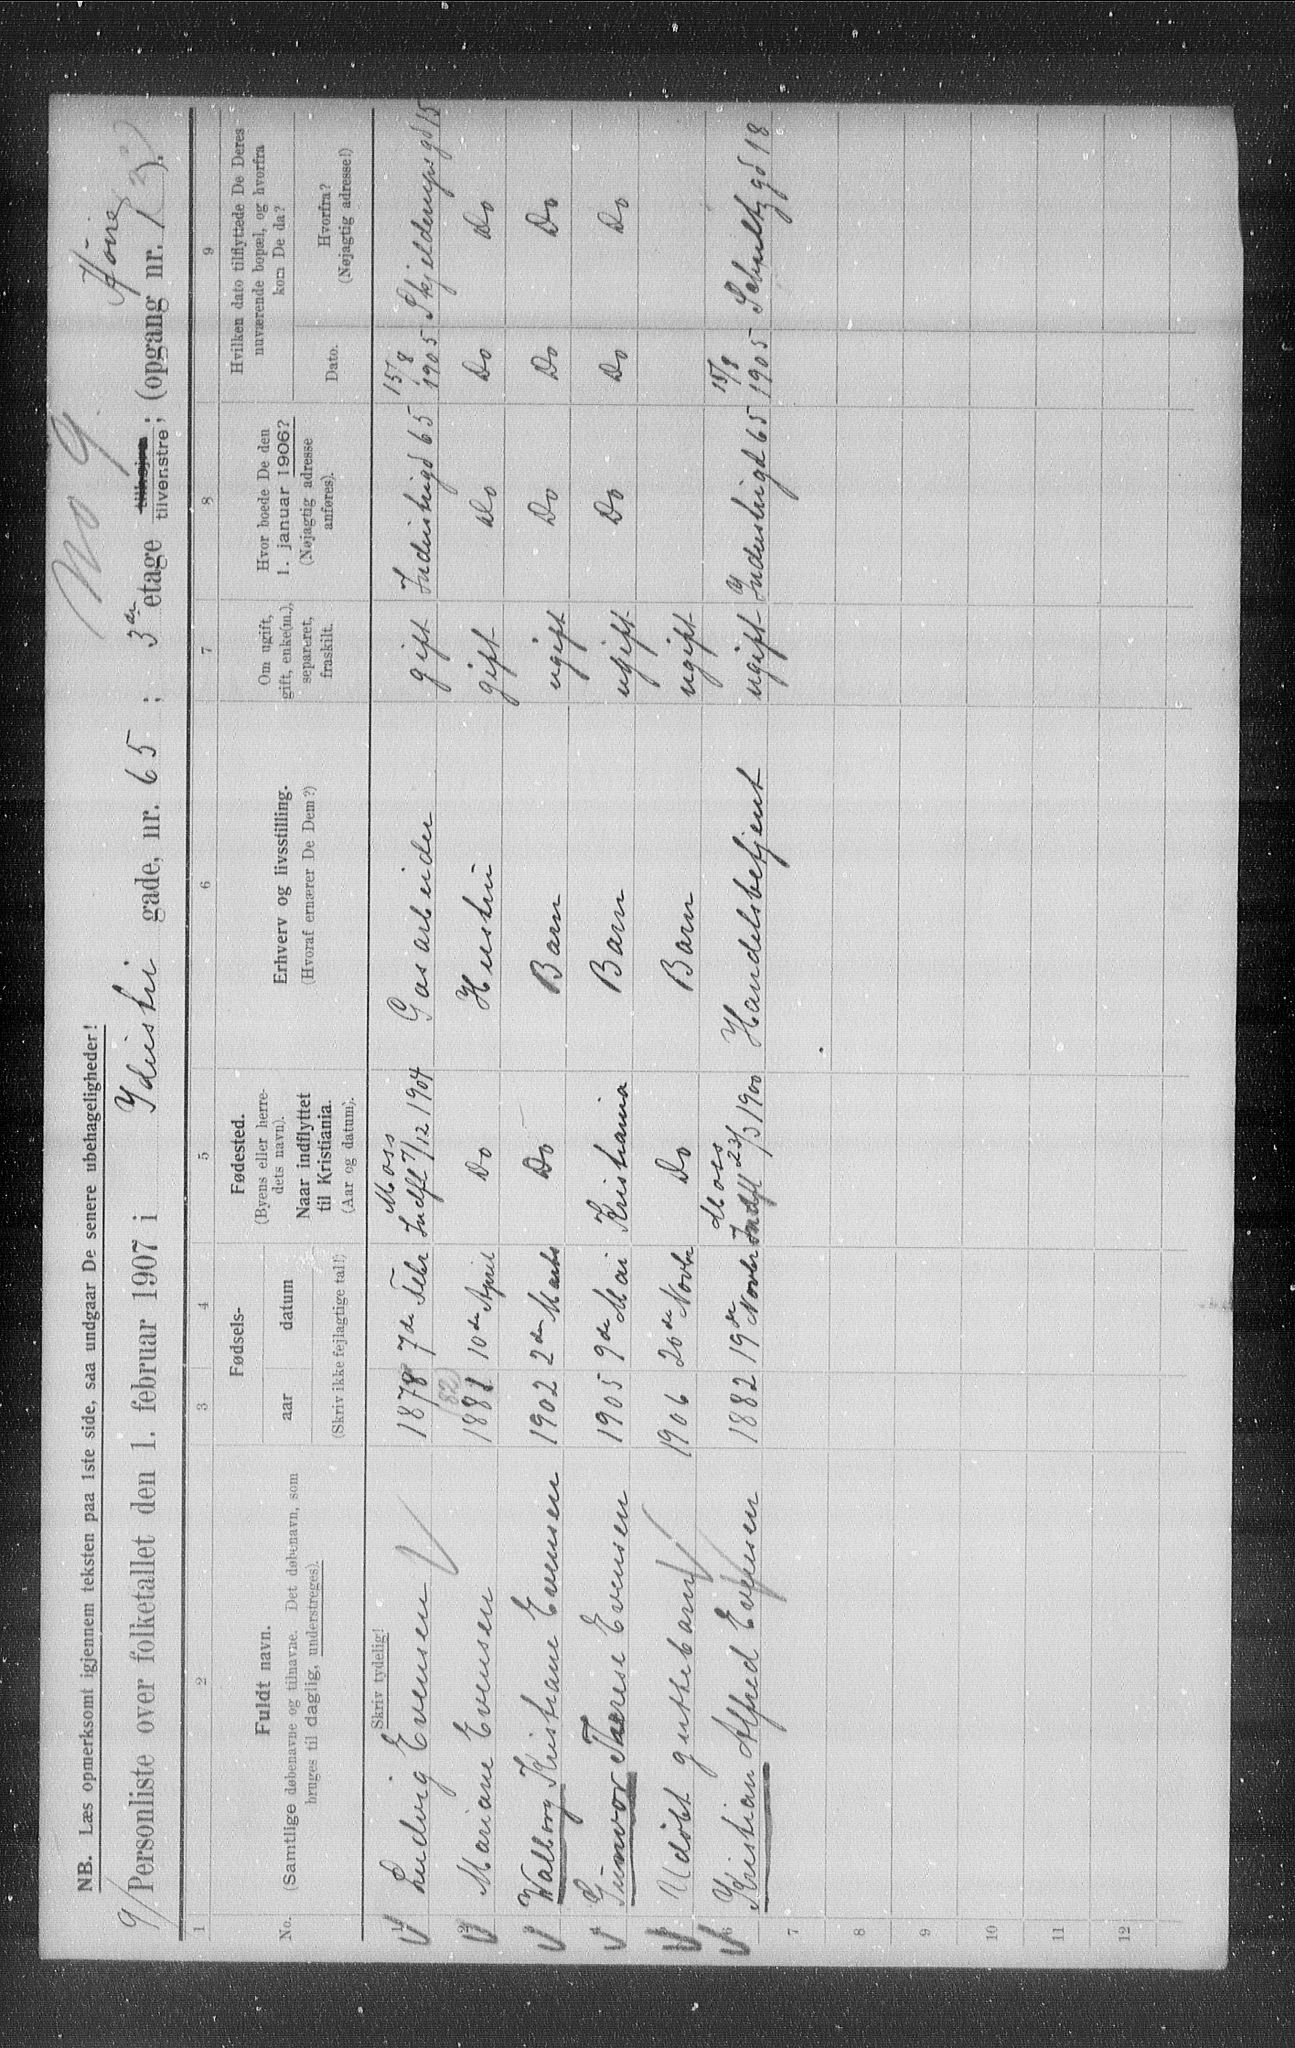 No 9
NB. Læs opmerksomt igjennem teksten paa 1ste side, saa undgaar De senere ubehageligheder!
Høire
9/ Personliste over folketallet den 1. februar 1907 i Idustri gade, nr. 65 ; 3de etage tilhøjre tilvenstre ; (opgang nr. 1 ).
1 2 3 4 5 6 7 8 9
No. Fuldt navn. (Samtlige døbenavne og tilnavne. Det døbenavn, som bruges til daglig, understreges). Fødsels- aar datum (Skriv ikke fejlagtige tal!) Fødested. (Byens eller herredets navn). Naar indflyttet til Kristiania. (Aar og datum). Erhverv og livsstilling. (Hvoraf ernærer De Dem?) Om ugift, gift, enke(m.), separeret, fraskilt. Hvor boede De den 1. januar 1906? (Nøjagtig adresse anføres). Hvilken dato tilflyttede De Deres nuværende bopæl, og hvorfra kom De da? Dato. Hvorfra? (Nøjagtig adresse!)
Skriv tydelig!
1 Ludvig Evensen 1878 7de Febr Moss Indfl 7/12 1904 Gasarbeider gift Industrigd 65 15/8 1905 Skjeldrups gd 15
2 Mariane Evensen 1881 (82) 10de April Do Hustru gift Do Do Do
3 Walborg Kristiane Evensen 1902 2den Marts Do Barn ugift Do Do Do
4 Gunvor Therese Evensen 1905 9de Mai Kristiania Barn ugift Do Do Do
5 Udøbt guttebarn 1906 20de Novbr Do Barn ugift
6 Kristian Alfred Evensen 1882 19de Novbr Moss Indfl 23/3 1900 Handelsbetjent ugift Industrigd 65 15/8 1905 Schultzgd 18
7
8
9
10
11
12